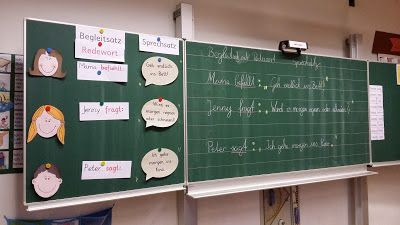 Begleitsatz
Redewort
Sprechsatz
Mama befiehlt:
Geh endlich
ins Bett!
Jenny fragt:
Wird es
morgen regnen
oder schneien?
Peter sagt:
Ich gehe
morgen ins
Kino.
Begleitsatz Redewort Sprechsatz
Mama befiehlt: „Geh endlich ins Bett!“
Jenny fragt: „Wird es morgen regnen oder schneien?“
Peter sagt: „Ich gehe morgen ins Kino.“